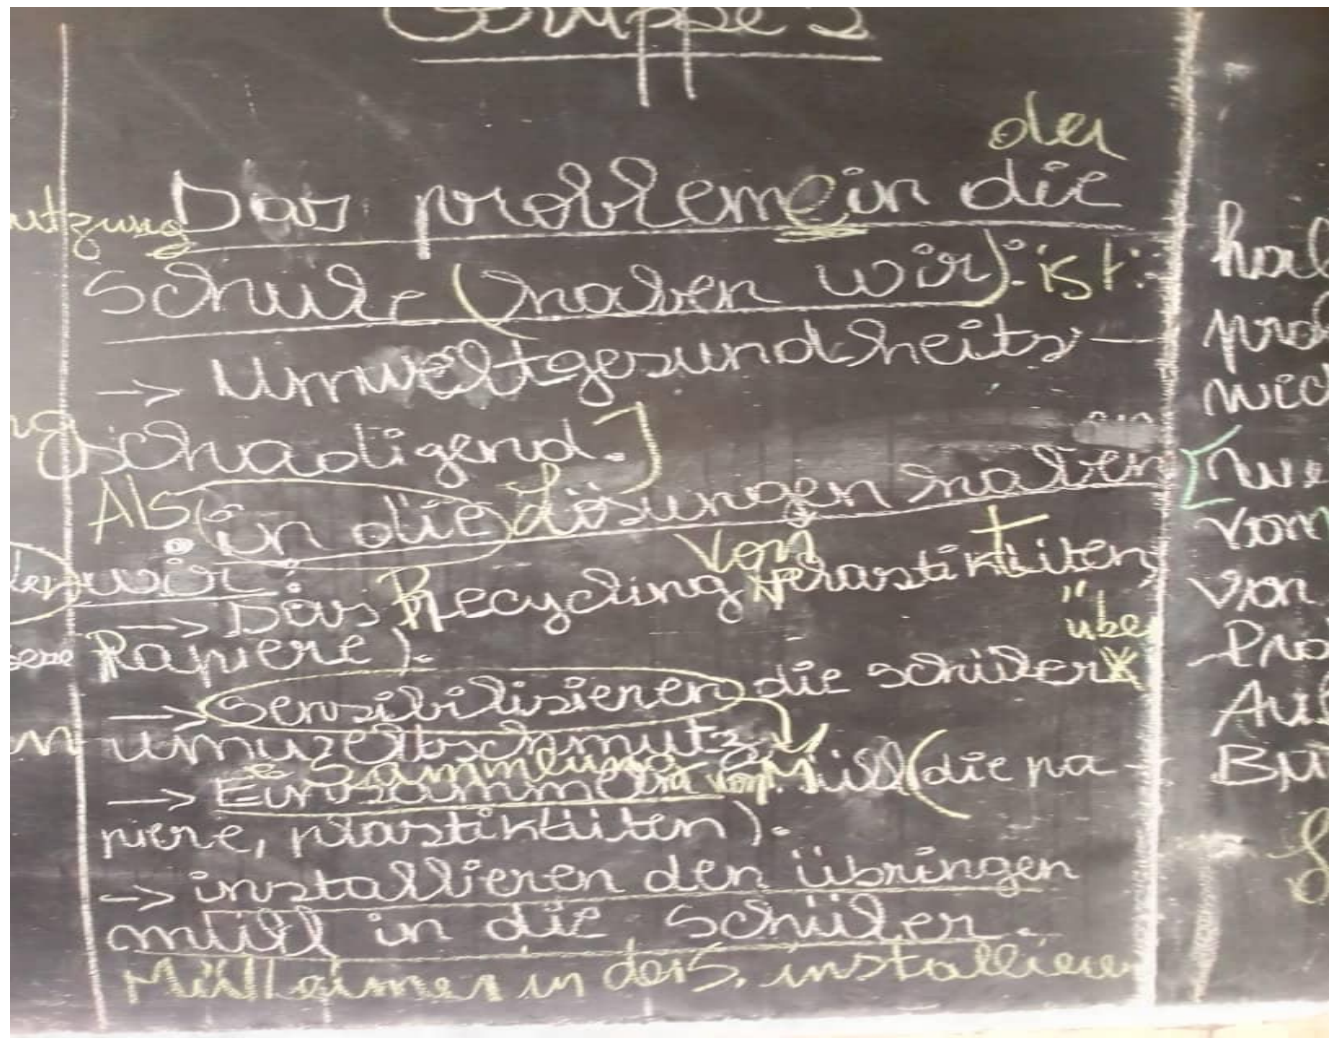 Gruppe 2
der
Das probleme in die
Schule (haben wir): ist:
→ Umweltgesundheits-
schadigend.]
Als in die lösungen haben
wir:
von
→ Das Recycling Plastiktüten,
Papiere).
über
→ sensibilisieren die schüler
umweltschmutz
Sammlung
→ Einsammeln von Müll (die pa-
piere, plastiktüten).
→ installieren den übringen
müll in die Schüler.
Mülleimer in der S. installieren
utzung
ng
en
hab
pro
wic
[we
vom
von
Pro
Auf